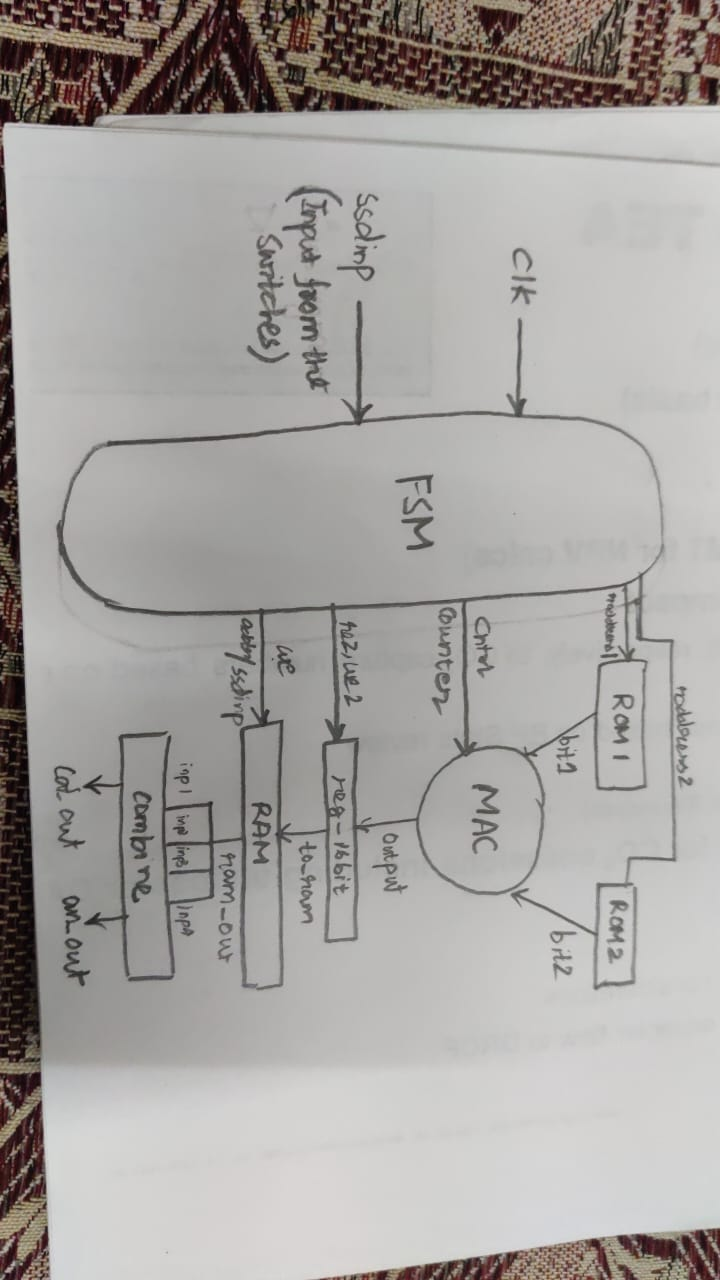 Clk
ssdinp
(Input from the
switches)
FSM
ROM1
ROM2
bit1
bit2
MAC
cntrl
counter
output
re2, we2
reg-16bit
to_ram
we
addr/ssdinp
RAM
ram_out
inp1
inp2
inp3
inp4
combine
cat_out
an_out